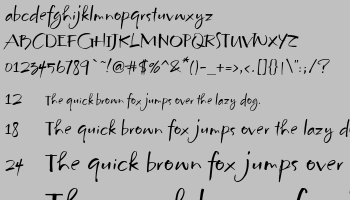 abcdefghijklmnopqrstuvwxyz
ABCDEFGHIJKLMNOPQRSTUVWXYZ
0123456789`~!@#$%^&*()-_+=>,<.[]{}|\":;/?
12 The quick brown fox jumps over the lazy dog.
18 The quick brown fox jumps over the lazy d
24 The quick brown fox jumps over